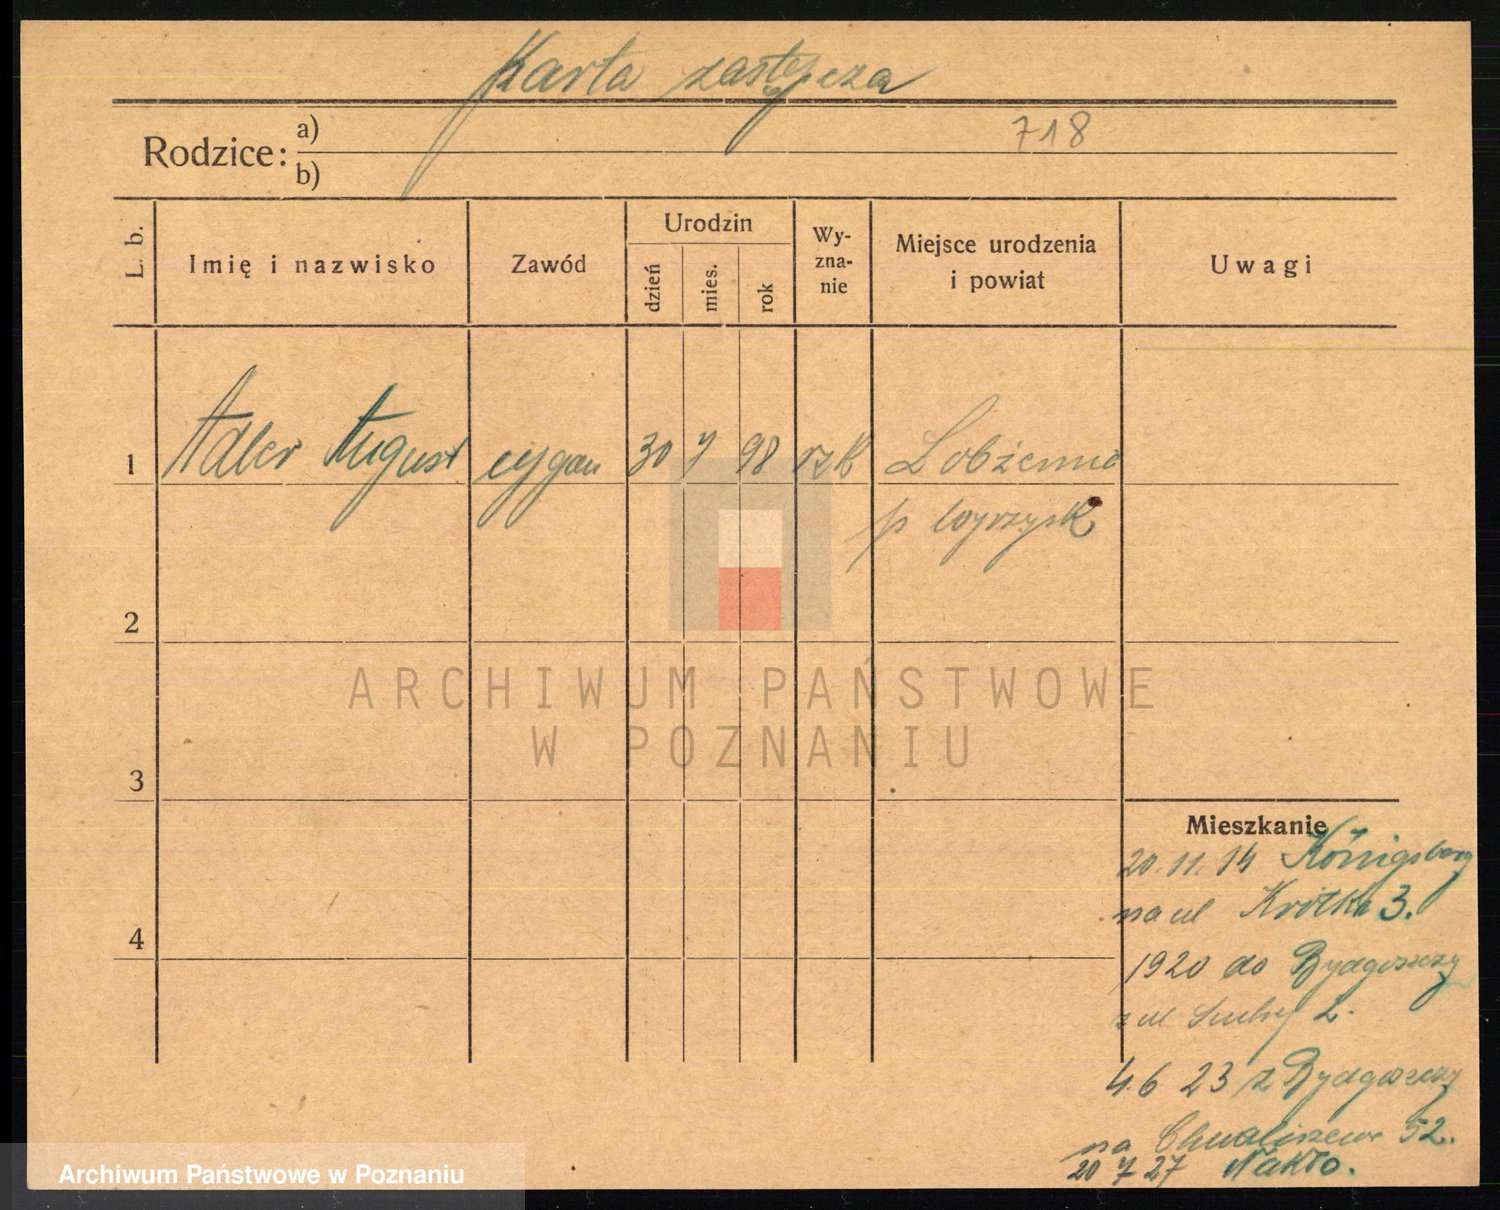 Karta zastępcza
718
Rodzice: a)
b)
L. b.
Imię i nazwisko
Zawód
Urodzin
dzień
mies.
rok
Wy-
zna-
nie
Miejsce urodzenia
i powiat
Uwagi
1 Adler August cygan 30 7 98 rzk Lobżenica
p Wyrzysk
2
ARCHIWUM PAŃSTWOWE
W POZNANIU
3
Mieszkanie
20.11.14 Königsberg
na ul Krótka 3.
4
1920 do Bydgoszczy
z ul 2.
4.6 23 z Bydgoszczy
na Chwaliszewo 52.
20 7 27 Nakło.
Archiwum Państwowe w Poznaniu